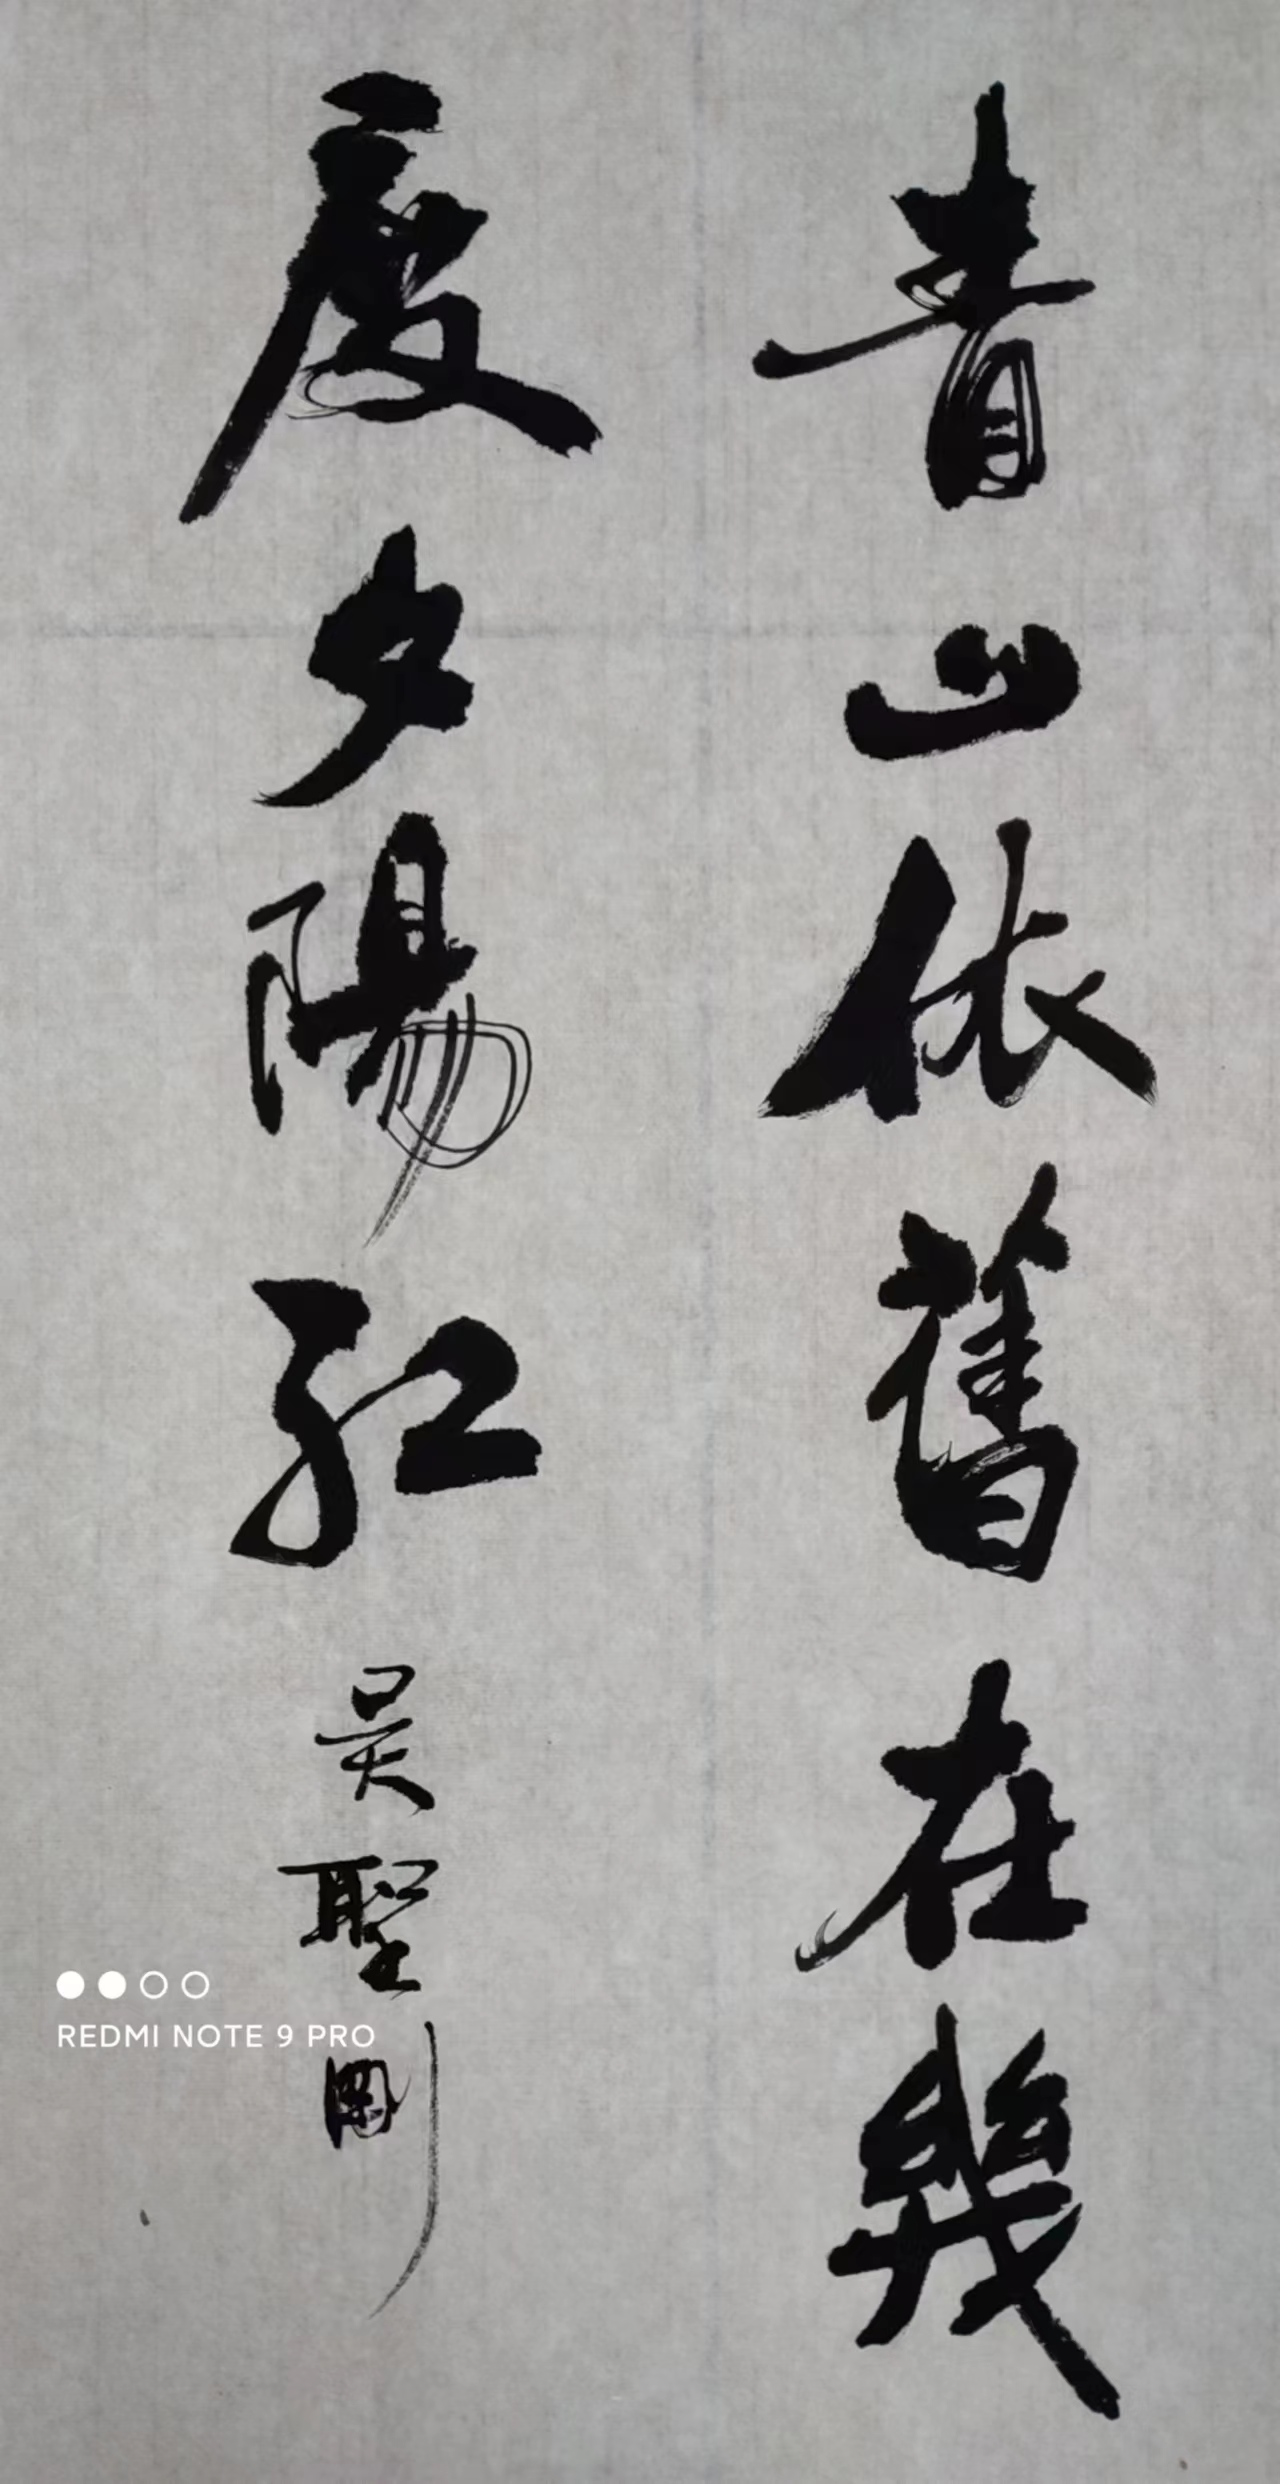 青山依舊在幾
度夕陽紅
吳聖剛
REDMI NOTE 9 PRO